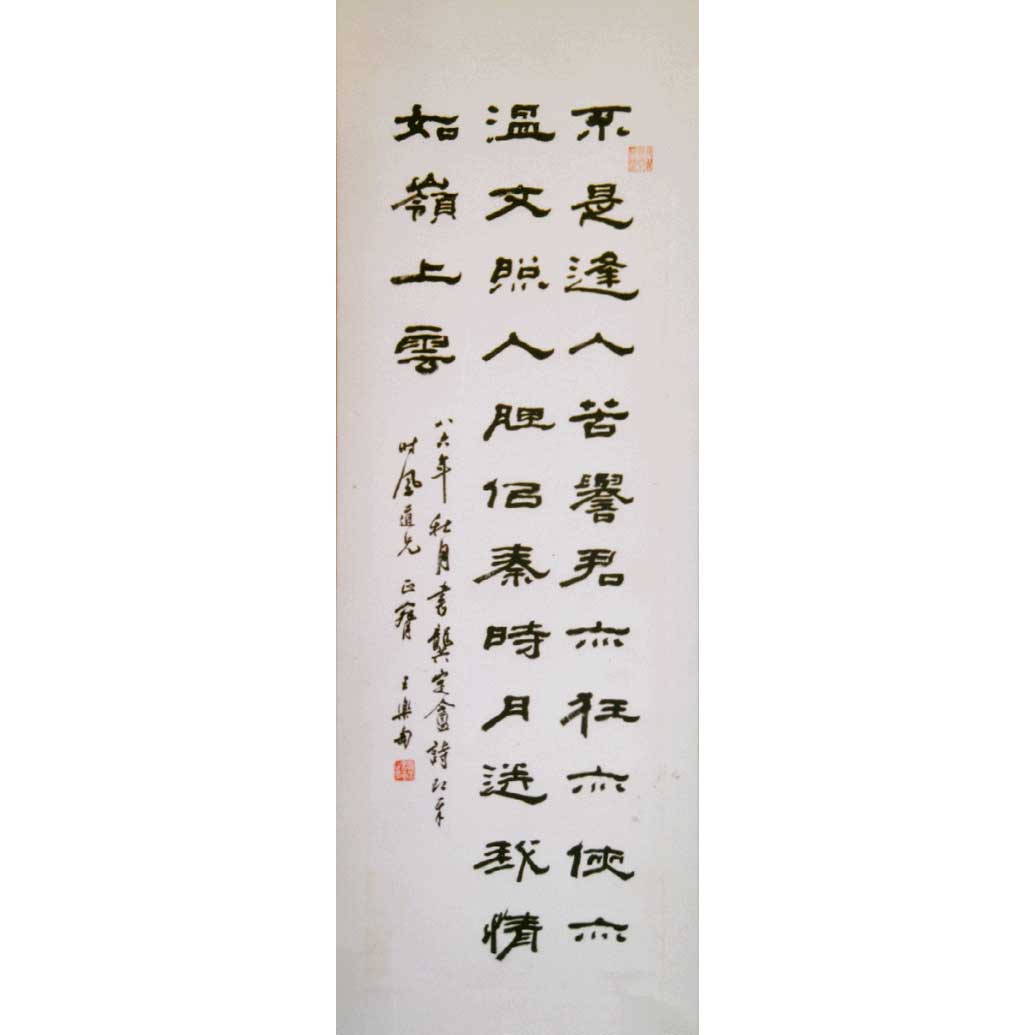 不是逢人苦譽君亦狂亦俠亦
溫文照人胆佀秦時月送我情
如嶺上雲
八六年秋月書龔定盦詩於
时風道兄正腕 王樂